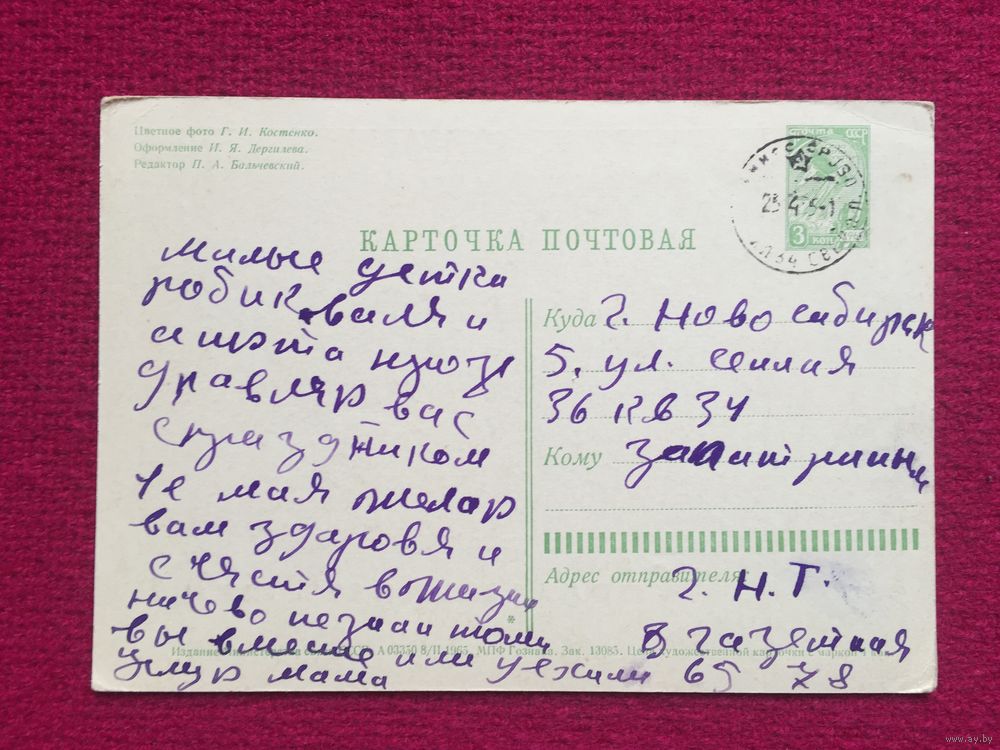 Цветное фото Г. И. Костенко.
Оформление И. Я. Дергилева.
Редактор П. А. Бальчевский.
ПОЧТА СССР
3 КОП
КАРТОЧКА ПОЧТОВАЯ
милые детки
робик валя и
анюта
дравляю вас
с праздником
1е мая желаю
вам здаровя и
счястя в жизни
ничево незнаи
вы вместе или уехали
целую мама
Куда г. Новосибирск
5, ул. Сиплая
36 кв 34
Кому
Адрес отправителя:
г. Н.Т.
В газетная
65 78
Издание Министерства связи СССР А 03350 8/II-1965. МПФ Гознака. Зак. 13085. Цена художественной карточки с маркой 4 коп.
www.ay.by